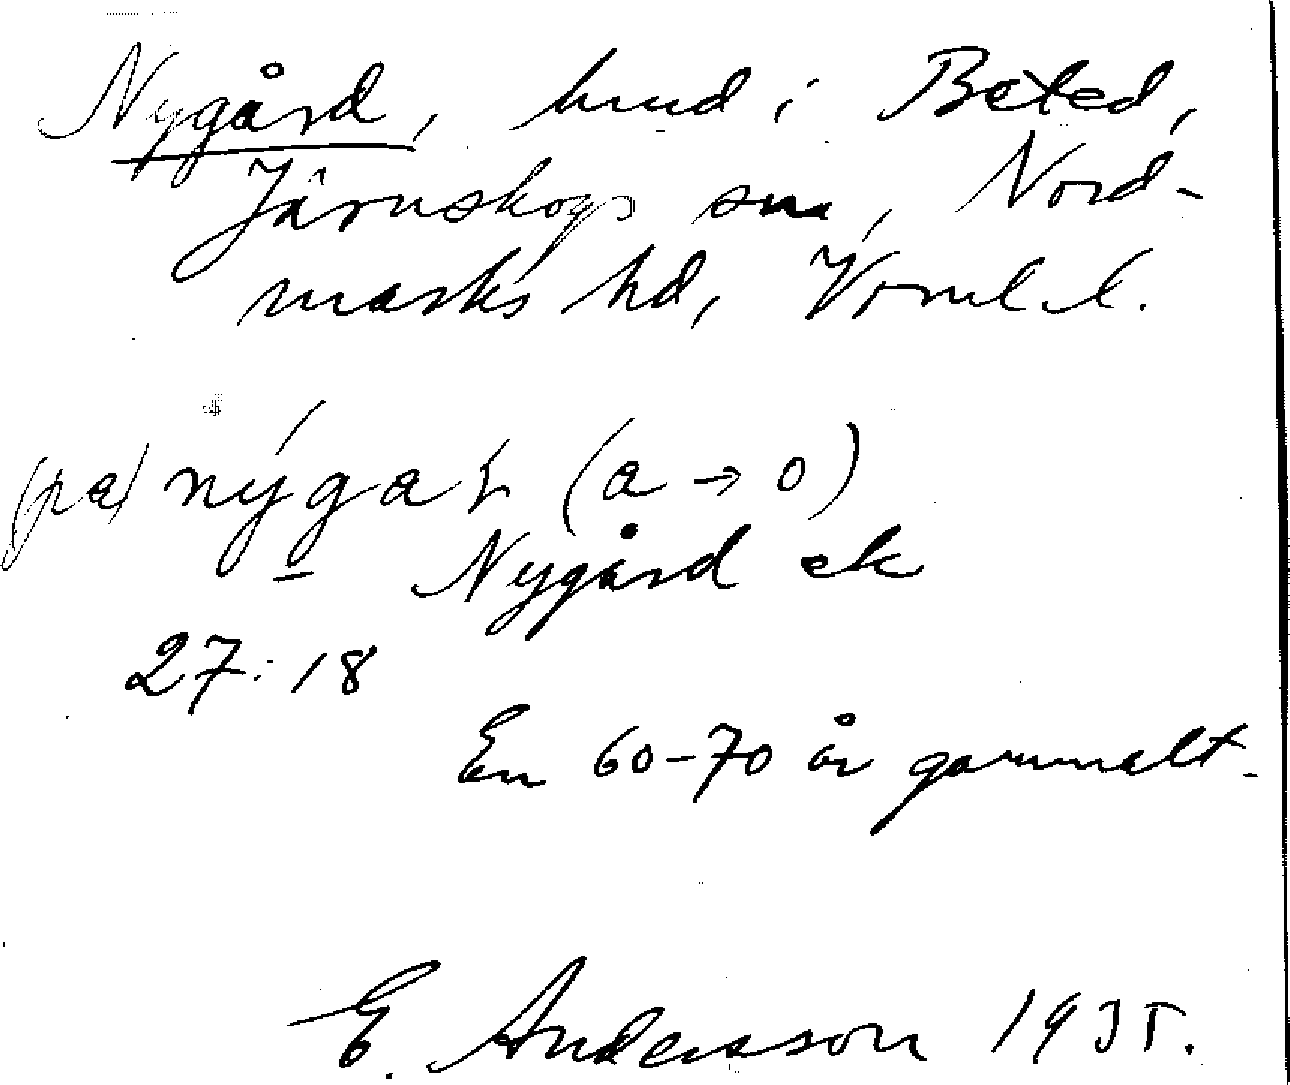 Nygård, hmd i Beted,
Järnskogs sn, Nord-
marks hd, Värml. l.
(pa) nýgaɽ (a → o)
Nygård ek
27:18
En 60-70 år gammalt.
E. Andersson 1935.